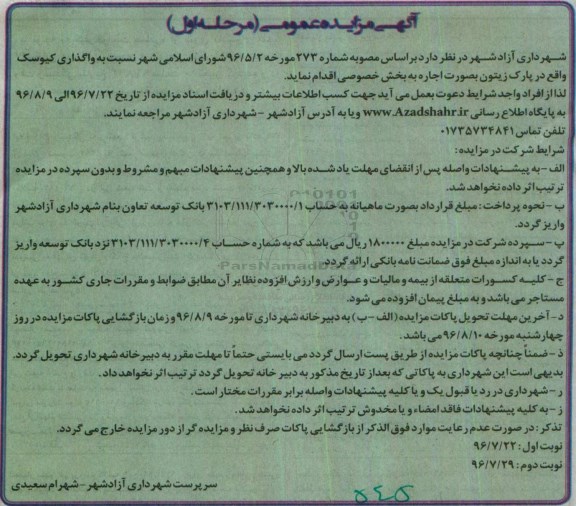 آگهی مزایده عمومی (مرحله اول)
شهرداری آزادشهر در نظر دارد بر اساس مصوبه شماره ۲۷۳ مورخه ۹۶/۵/۲ شورای اسلامی شهر نسبت به واگذاری کیوسک
واقع در پارک زیتون بصورت اجاره به بخش خصوصی اقدام نماید.
لذا از افراد واجد شرایط دعوت بعمل می آید جهت کسب اطلاعات بیشتر و دریافت اسناد مزایده از تاریخ ۹۶/۷/۲۲ الی ۹۶/۸/۹
به پایگاه اطلاع رسانی www.Azadshahr.ir و یا به آدرس آزادشهر - شهرداری آزادشهر مراجعه نمایند.
تلفن تماس ۰۱۷۳۵۷۳۴۸۴۱
شرایط شرکت در مزایده:
الف - به پیشنهادات واصله پس از انقضای مهلت یاد شده بالا و همچنین پیشنهادات مبهم و مشروط و بدون سپرده در مزایده
ترتیب اثر داده نخواهد شد.
ب - نحوه پرداخت: مبلغ قرارداد بصورت ماهیانه به حساب ۳۱۰۳/۱۱۱/۳۰۳۰۰۰۰/۱ بانک توسعه تعاون بنام شهرداری آزادشهر
واریز گردد.
پ - سپرده شرکت در مزایده مبلغ ۱۸۰۰۰۰۰ ریال می باشد که به شماره حساب ۳۱۰۳/۱۱۱/۳۰۳۰۰۰۰/۴ نزد بانک توسعه واریز
گردد یا به اندازه مبلغ فوق ضمانت نامه بانکی ارائه گردد.
ج - کلیه کسورات متعلقه از بیمه و مالیات و عوارض و ارزش افزوده نظایر آن مطابق ضوابط و مقررات جاری کشور به عهده
مستاجر می باشد و به مبلغ پیمان افزوده می شود.
د - آخرین مهلت تحویل پاکات مزایده (الف - ب) به دبیرخانه شهرداری تا مورخه ۹۶/۸/۹ و زمان بازگشایی پاکات مزایده در روز
چهارشنبه مورخه ۹۶/۸/۱۰ می باشد.
ذ - ضمناً چنانچه پاکات مزایده از طریق پست ارسال گردد می بایستی حتماً تا مهلت مقرر به دبیرخانه شهرداری تحویل گردد.
بدیهی است این شهرداری به پاکاتی که بعد از تاریخ مذکور به دبیر خانه تحویل گردد ترتیب اثر نخواهد داد.
ر - شهرداری در رد یا قبول یک و یا کلیه پیشنهادات واصله برابر مقررات مختار است.
ز - به کلیه پیشنهادات فاقد امضاء و یا مخدوش ترتیب اثر داده نخواهد شد.
تذکر: در صورت عدم رعایت موارد فوق الذکر از بازگشایی پاکات صرف نظر و مزایده گر از دور مزایده خارج می گردد.
نوبت اول: ۹۶/۷/۲۲
نوبت دوم: ۹۶/۷/۲۹
سرپرست شهرداری آزادشهر - شهرام سعیدی